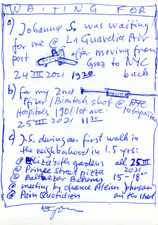 WAITING FOR
1) Johanna S. was waiting
for me @ La Guardia Air
port after moving from
Graz to NYC
24 III 2021 1930 back
2) for my 2nd
Pfizer/Biontech shot @ NYC
Hospitals, 190/1st ave
25 III 2021 11
J.S. during our first walk in
the neighborhood in 1.5 yrs:
@ Elizabeth gardens all 25 III
@ Prince Street pizza 2021
@ Balthazar Bakery 15 - 18
@ meeting by chance
@ Pain Quotidien on the street